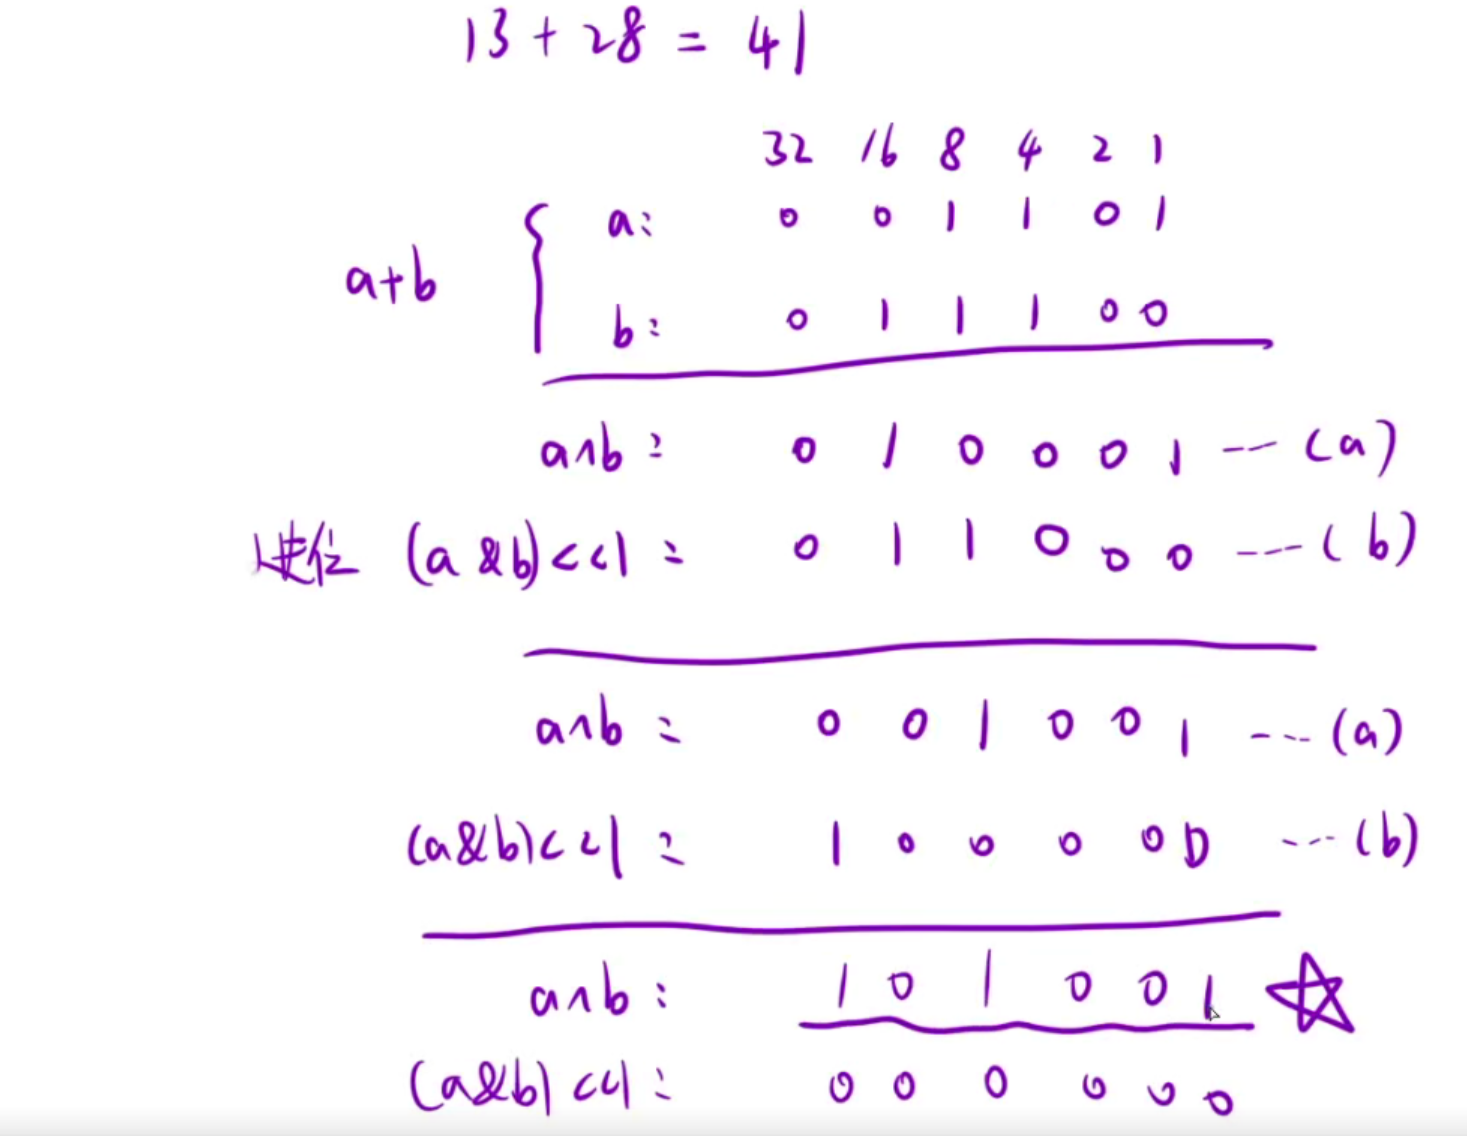 13 + 28 = 41
32 16 8 4 2 1
a: 0 0 1 1 0 1
a+b
b: 0 1 1 1 0 0
a^b: 0 1 0 0 0 1 --- (a)
进位 (a&b)<<1 = 0 1 1 0 0 0 --- (b)
a^b = 0 0 1 0 0 1 --- (a)
(a&b)<<1 = 1 0 0 0 0 0 --- (b)
a^b: 1 0 1 0 0 1
(a&b)<<1: 0 0 0 0 0 0